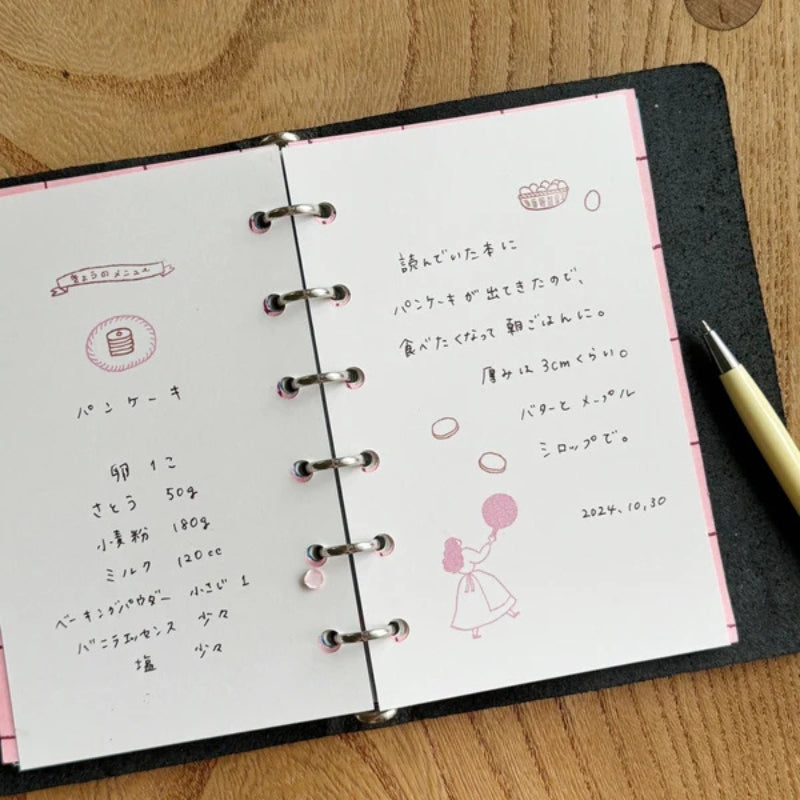 きょうのメニュー
パンケーキ
卵 1こ
さとう 50g
小麦粉 180g
ミルク 120cc
ベーキングパウダー 小さじ 1
バニラエッセンス 少々
塩 少々
読んでいた本に
パンケーキが出てきたので、
食べたくなって朝ごはんに。
厚みは3cmくらい。
バターとメープル
シロップで。
2024.10.30